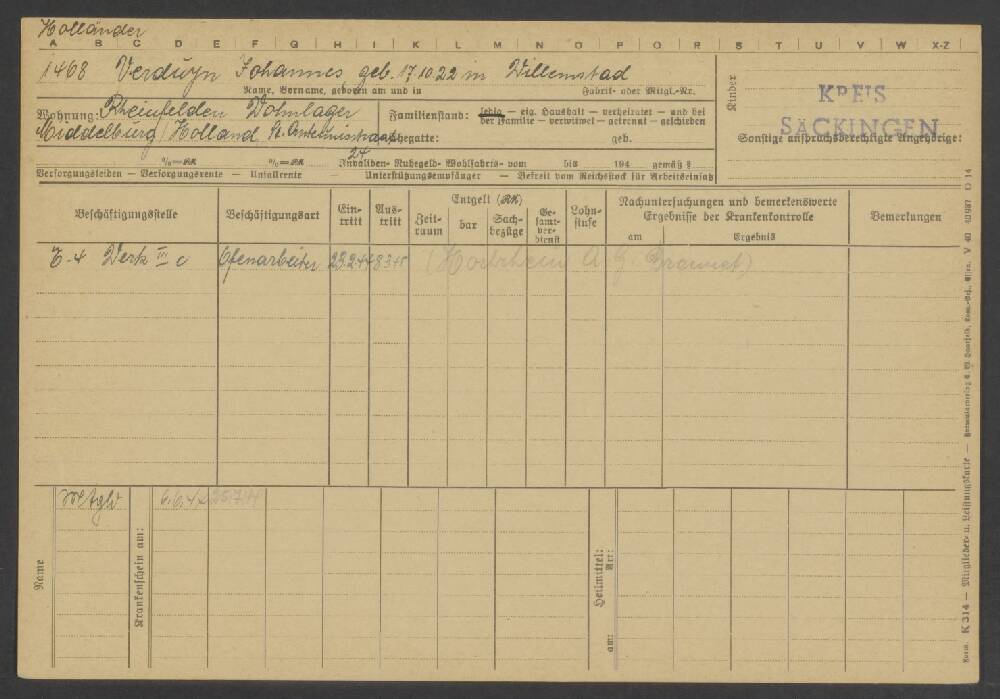 Holländer
A B C D E F G H I H K L M N O P Q R S T U V W X-Z
1468 Verduyn Johannes geb. 17.10.22 in Willemstad
Name, Vorname, geboren am und in Fabrik- oder Mitgl.-Nr.
Kinder
KREIS
SÄCKINGEN
Wohnung: Rheinfelden Wohnlager
Middelburg/Holland
24
Familienstand: ledig — eig. Haushalt — verheiratet — und bei
der Familie — verwitwet — getrennt — geschieden
Ehegatte: geb.
Sonstige anspruchsberechtigte Angehörige:
%=RK %=RK Invaliden- Ruhegeld- Wohlfahrts- vom bis 194 gemäß §
Versorgungsleiden — Versorgungsrente — Unfallrente — Unterstützungsempfänger — Befreit vom Reichsstock für Arbeitseinsatz
Beschäftigungsstelle Beschäftigungsart Ein-tritt Aus-tritt
Entgelt (RK)
Zeit-raum bar Sach-bezüge Ge-samt-ver-dienst Lohn-stufe
Nachuntersuchungen und bemerkenswerte
Ergebnisse der Krankenkontrolle
am Ergebnis
Bemerkungen
E-4 Werk III c Ofenarbeiter 23.2.44 8.3.45 (Hochrhein A. G.
Name
Mitgld
Krankenschein am:
6.6.44 25.7.44
Heilmittel:
am: Art:
Form. K 314 — Mitglieder- u. Leistungskarte —